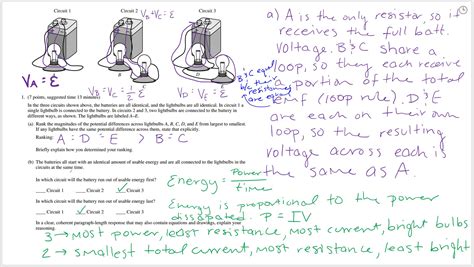 Circuit 1
Circuit 2
Circuit 3
V_B+V_C = Ɛ
V_A = Ɛ
V_B = V_C = 1/2 Ɛ
V_D = V_E = Ɛ
A
B
C
D
E
1. (7 points, suggested time 13 minutes)
In the three circuits shown above, the batteries are all identical, and the lightbulbs are all identical. In circuit 1 a
single lightbulb is connected to the battery. In circuits 2 and 3, two lightbulbs are connected to the battery in
different ways, as shown. The lightbulbs are labeled A–E.
(a) Rank the magnitudes of the potential differences across lightbulbs A, B, C, D, and E from largest to smallest.
If any lightbulbs have the same potential difference across them, state that explicitly.
Ranking: A = D = E > B = C
Briefly explain how you determined your ranking.
(b) The batteries all start with an identical amount of usable energy and are all connected to the lightbulbs in the
circuits at the same time.
In which circuit will the battery run out of usable energy first?
Circuit 1 Circuit 2 Circuit 3
In which circuit will the battery run out of usable energy last?
Circuit 1 Circuit 2 Circuit 3
In a clear, coherent paragraph-length response that may also contain equations and drawings, explain your
reasoning.
a) A is the only resistor, so it
receives the full batt.
voltage. B & C share a
loop, so they each receive
B & C equal
b/c their
resistances
are eq.
a portion of the total
emf (loop rule). D & E
are each on their own
loop, so the resulting
voltage across each is
the same as A.
Energy = Power/time
Energy is proportional to the power
dissipated. P = IV
3 → most power, least resistance, most current, bright bulbs
2 → smallest total current, most resistance, least bright